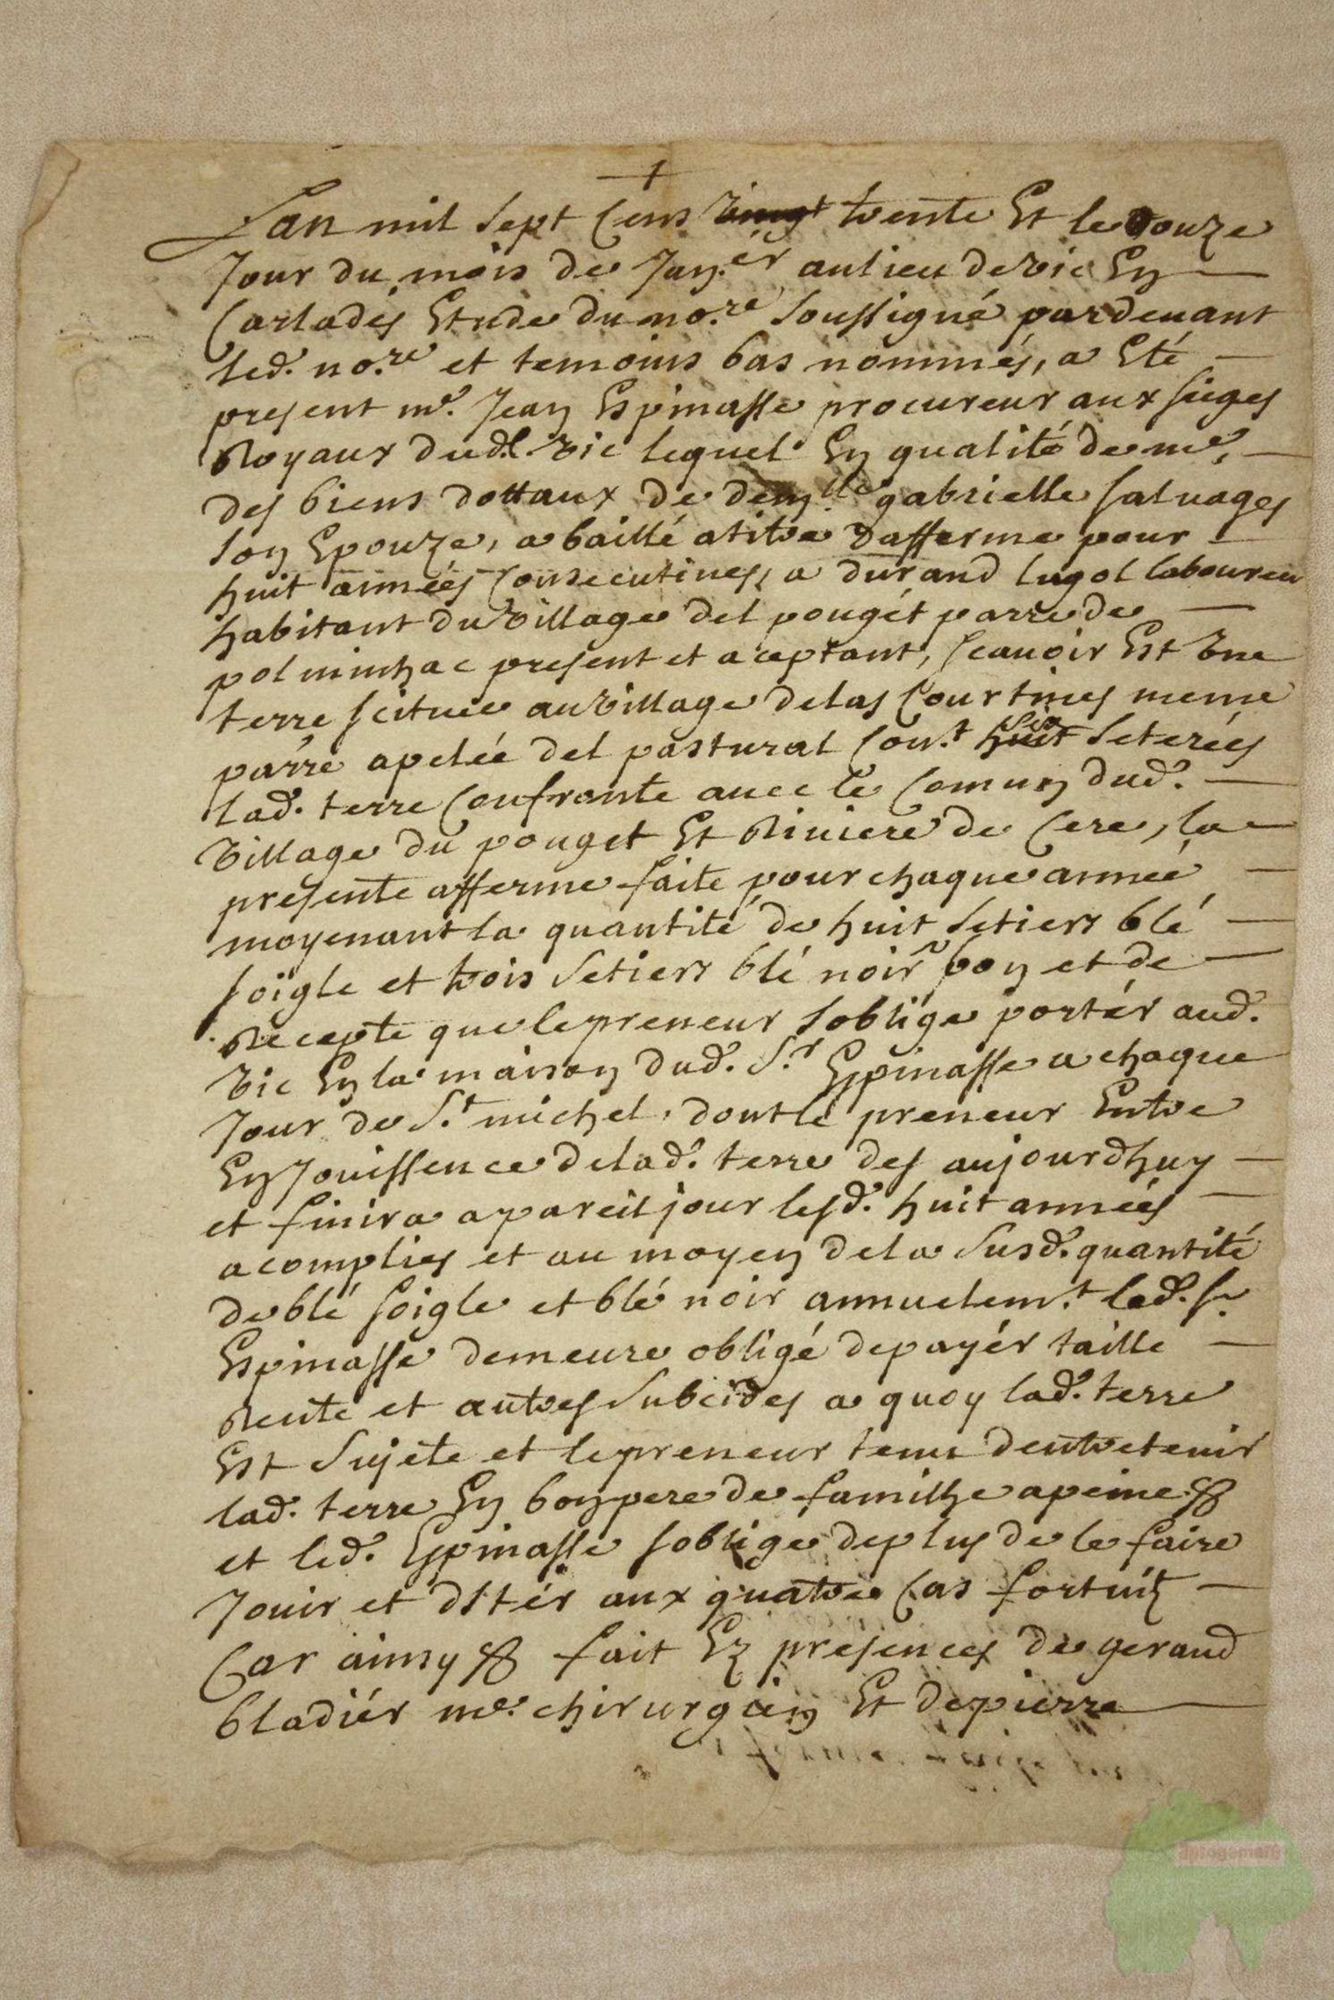 Lan mil sept cens vingt trente Et le douze
Jour du mois de Jan.er au lieu de vic En
Carladés Etude du no.re soussigné pardevant
led. no.re et temoins bas nommés, a Eté
present me. Jean Espinasse procureur aux sieges
Royaux dud. vic lequel En qualité de me.
des biens dottaux de dem.lle gabrielle salvages
son Epouze, a baillé a titre dafferme pour
huit années consecutives, a durand lugol laboureur
habitant du village del pougét parre de
polminhac present et aceptant, scavoir Est vne
terre scituée au village de las Courtines meme
parre apelée del pastural con.t huit six seterées
lad. terre confronte avec le comun dud.
village du pouget Et Riviere de Cere, la
presente afferme faite pour chaque année
moyenant la quantité de huit setiers blé
soigle et trois setiers blé noir bon et de
Recepte que le preneur soblige portér aud.
vic En la maison dud. S.r Espinasse a chaque
Jour de S.t michel, dont le preneur Entre
En Jouissence de lad. terre des aujourdhuy
et finira a pareil jour lesd. huit années
acomplies et au moyen de la susd. quantité
de blé soigle et blé noir annuelem.t led. Sr.
Espinasse demeure obligé de payér taille
Rente et autres subcides a quoy lad. terre
Est sujete et le preneur tenu dentretenir
lad. terre En bon pere de familhe a peine &
et led. Espinasse soblige de plus de le faire
Jouir et dstér aux quatre cas fortuitz
Car ainsy & fait Ez presences de geraud
bladiér me. chirurgien Et de pierre